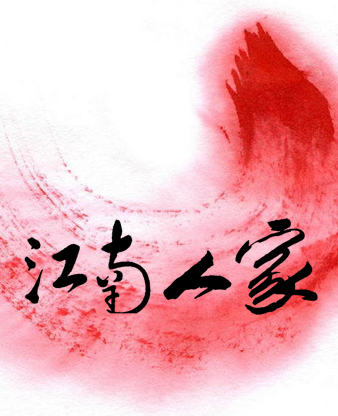 江南人家